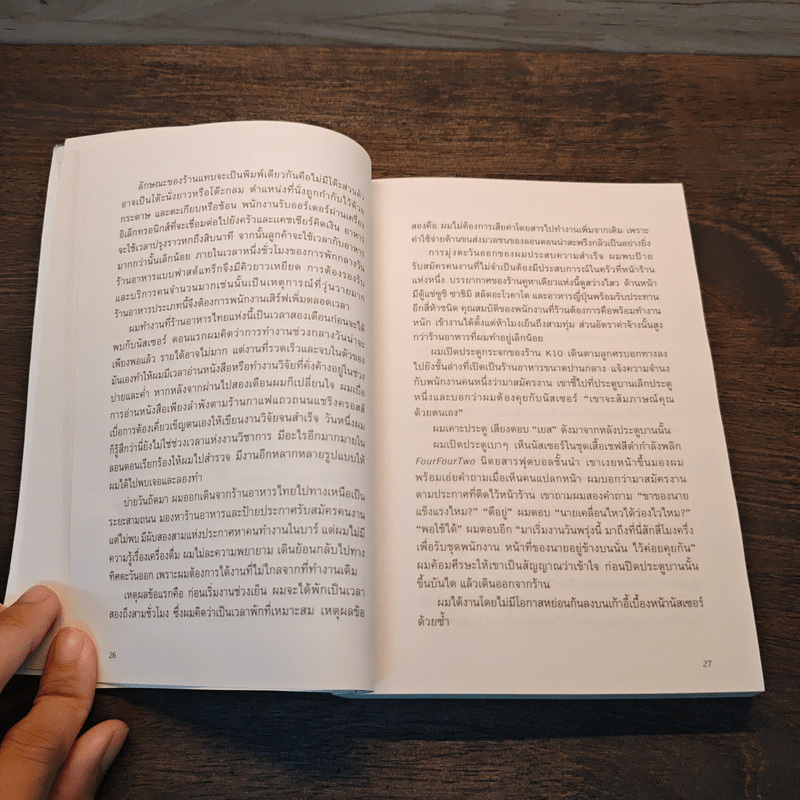 ลักษณะของร้านแทบจะเป็นพิมพ์เดียวกันคือไม่มีโต๊ะส่วนตัว
อาจเป็นโต๊ะนั่งยาวหรือโต๊ะกลม ตำแหน่งที่นั่งถูกกำกับไว้ด้วย
กระดาษ และตะเกียบหรือช้อน พนักงานรับออร์เดอร์ผ่านเครื่อง
อิเล็กทรอนิกส์ที่จะเชื่อมต่อไปยังครัวและแคชเชียร์คิดเงิน อาหาร
จะใช้เวลาปรุงราวหกถึงสิบนาที จากนั้นลูกค้าจะใช้เวลากับอาหาร
มากกว่านั้นเล็กน้อย ภายในเวลาหนึ่งชั่วโมงของการพักกลางวัน
ร้านอาหารแบบฟาสต์แทร็กจึงมีคิวยาวเหยียด การต้องรองรับ
และบริการคนจำนวนมากเช่นนั้นเป็นเหตุการณ์ที่วุ่นวายมาก
ร้านอาหารประเภทนี้จึงต้องการพนักงานเสิร์ฟเพิ่มตลอดเวลา
ผมทำงานที่ร้านอาหารไทยแห่งนี้เป็นเวลาสองเดือนก่อนจะได้
พบกับนัสเซอร์ ตอนแรกผมคิดว่าการทำงานช่วงกลางวันน่าจะ
เพียงพอแล้ว รายได้อาจไม่มาก แต่งานที่รวดเร็วและจบในตัวของ
มันเองทำให้ผมมีเวลาอ่านหนังสือหรือทำงานวิจัยที่คั่งค้างอยู่ในช่วง
บ่ายและค่ำ หากหลังจากผ่านไปสองเดือนผมก็เปลี่ยนใจ ผมเบื่อ
การอ่านหนังสือเพียงลำพังตามร้านกาแฟแถวถนนแชริงครอสส์
เบื่อการต้องเคี่ยวเข็ญตนเองให้เขียนงานวิจัยจนสำเร็จ วันหนึ่งผม
ก็รู้สึกว่านี่ยังไม่ใช่ช่วงเวลาแห่งงานวิชาการ มีอะไรอีกมากมายใน
ลอนดอนเรียกร้องให้ผมไปสำรวจ มีงานอีกหลากหลายรูปแบบให้
ผมได้ไปพบเจอและลองทำ
บ่ายวันถัดมา ผมออกเดินจากร้านอาหารไทยไปทางเหนือเป็น
ระยะสามถนน มองหาร้านอาหารและป้ายประกาศรับสมัครคนงาน
แต่ไม่พบ มีผับสองสามแห่งประกาศหาคนทำงานในบาร์ แต่ผมไม่มี
ความรู้เรื่องเครื่องดื่ม ผมไม่ละความพยายาม เดินย้อนกลับไปทาง
ทิศตะวันออก เพราะผมต้องการได้งานที่ไม่ไกลจากที่ทำงานเดิม
เหตุผลข้อแรกคือ ก่อนเริ่มงานช่วงเย็น ผมจะได้พักเป็นเวลา
สองถึงสามชั่วโมง ซึ่งผมคิดว่าเป็นเวลาพักที่เหมาะสม เหตุผลข้อ
26
สองคือ ผมไม่ต้องการเสียค่าโดยสารไปทำงานเพิ่มจากเดิม เพราะ
ค่าใช้จ่ายด้านขนส่งมวลชนของลอนดอนน่าสะพรึงกลัวเป็นอย่างยิ่ง
การมุ่งตะวันออกของผมประสบความสำเร็จ ผมพบป้าย
รับสมัครคนงานที่ไม่จำเป็นต้องมีประสบการณ์ในครัวที่หน้าร้าน
แห่งหนึ่ง บรรยากาศของร้านคูหาเดียวแห่งนี้ดูสว่างไสว ด้านหน้า
มีตู้แช่ซูชิ ซาชิมิ สลัดอะโวคาโด และอาหารญี่ปุ่นพร้อมรับประทาน
อีกสี่ห้าชนิด คุณสมบัติของพนักงานที่ร้านต้องการคือพร้อมทำงาน
หนัก เข้างานได้ตั้งแต่ห้าโมงเย็นถึงสามทุ่ม ส่วนอัตราค่าจ้างนั้นสูง
กว่าร้านอาหารที่ผมทำอยู่เล็กน้อย
ผมเปิดประตูกระจกของร้าน K10 เดินตามลูกศรบอกทางลง
ไปยังชั้นล่างที่เปิดเป็นร้านอาหารขนาดปานกลาง แจ้งความจำนง
กับพนักงานคนหนึ่งว่ามาสมัครงาน เขาชี้ไปที่ประตูบานเล็กประตู
หนึ่งและบอกว่าผมต้องคุยกับนัสเซอร์ “เขาจะสัมภาษณ์คุณ
ด้วยตนเอง”
ผมเคาะประตู เสียงตอบ “เยส” ดังมาจากหลังประตูบานนั้น
ผมเปิดประตูเบาๆ เห็นนัสเซอร์ในชุดเสื้อเชฟสีดำกำลังพลิก
FourFourTwo นิตยสารฟุตบอลชั้นนำ เขาเงยหน้าขึ้นมองผม
พร้อมเอ่ยคำถามเมื่อเห็นคนแปลกหน้า ผมบอกว่ามาสมัครงาน
ตามประกาศที่ติดไว้หน้าร้าน เขาถามผมสองคำถาม “ขาของนาย
แข็งแรงไหม?” “ดีอยู่” ผมตอบ “นายเคลื่อนไหวได้ว่องไวไหม?”
“พอใช้ได้” ผมตอบอีก “มาเริ่มงานวันพรุ่งนี้ มาถึงที่นี่สักสี่โมงครึ่ง
เพื่อรับชุดพนักงาน หน้าที่ของนายอยู่ข้างบนนั่น ไว้ค่อยคุยกัน”
ผมค้อมศีรษะให้เขาเป็นสัญญาณว่าเข้าใจ ก่อนปิดประตูบานนั้น
ขึ้นบันได แล้วเดินออกจากร้าน
ผมได้งานโดยไม่มีโอกาสหย่อนก้นลงบนเก้าอี้เบื้องหน้านัสเซอร์
ด้วยซ้ำ
27